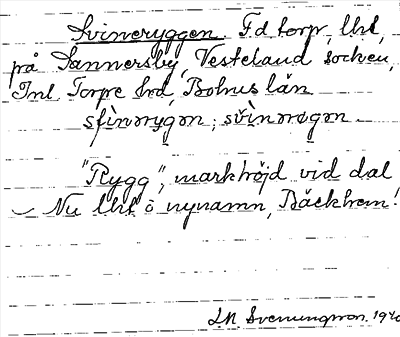 Svineryggen. F.d torp, lht,
på Sannersby, Vesteland socken,
Inl. Torpe hrd, Bohus län
sfìnrygən; svìnrøgən
"Rygg", markhöjd vid dal
Nu lht o nynamn, Bäckhem!
Svenungsson. 19